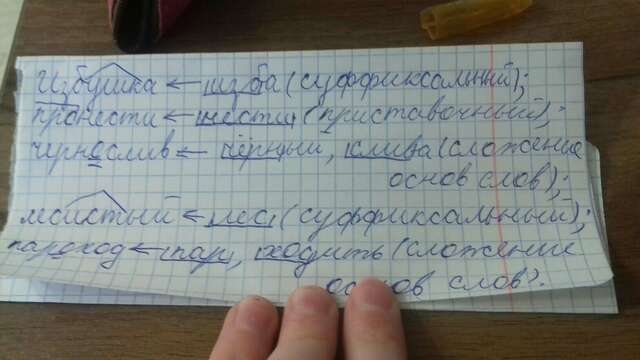 Избушка ← изба (суффиксальный);
пронести ← нести (приставочный);
чернослив ← чёрный, слива (сложение
основ слов);
лесистый ← лес (суффиксальный);
пароход ← пар, ходить (сложение
основ слов).